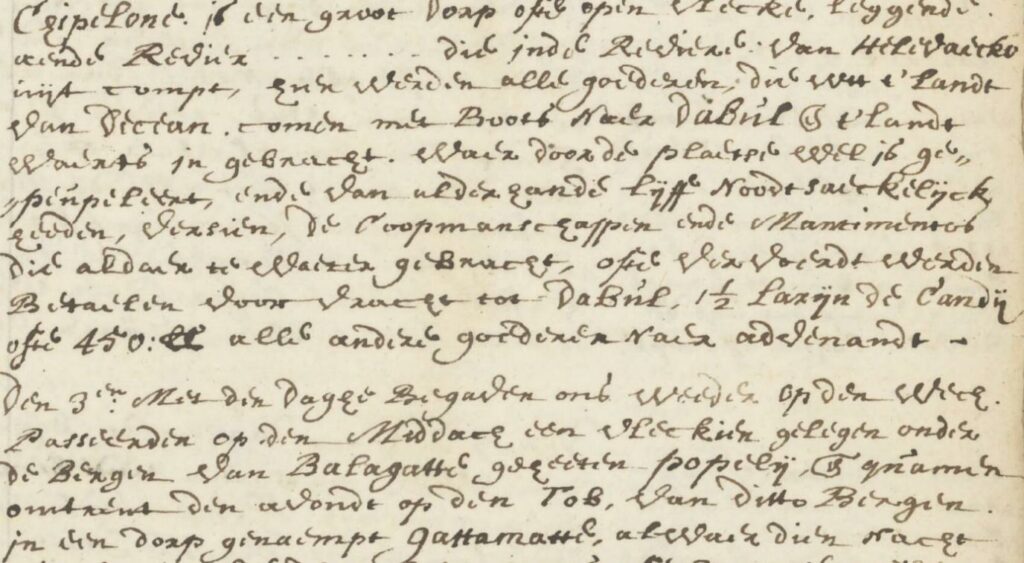 Chipelone. is een groot Dorp ofte open Vlecke, leggende.
aende Revier . . . . . . . die inde Reviere van Helewacko
uijt compt, hier werden alle goederen, die wtt t' Landt
van Decean. comen met Boots Naer Dabul & t' landt
waerts in gebracht. waer door de plaetse wel is ge„
„peupeleert, ende van alderhande lijff Noodtsaeckelijck
heeden, versien, De Coopmanschappen ende Mantimentos
die aldaer te waeter gebracht, ofte vervoerdt werden
Betaelen voor vracht tot Dabul. 1½ Larijn de Candij
ofte 450: ll alle andere goederen Naer advenandt -
Den 3en. Met den Daghe Begaven ons weeder op den wech.
Passeerden op den Middach een vleckien gelegen onder
de Bergen van Balagatte geheeten popelij, & quamen
omtrent den avondt op den Tob, van ditto Bergen.
in een dorp genaempt gattamatte, alwaer dien nacht